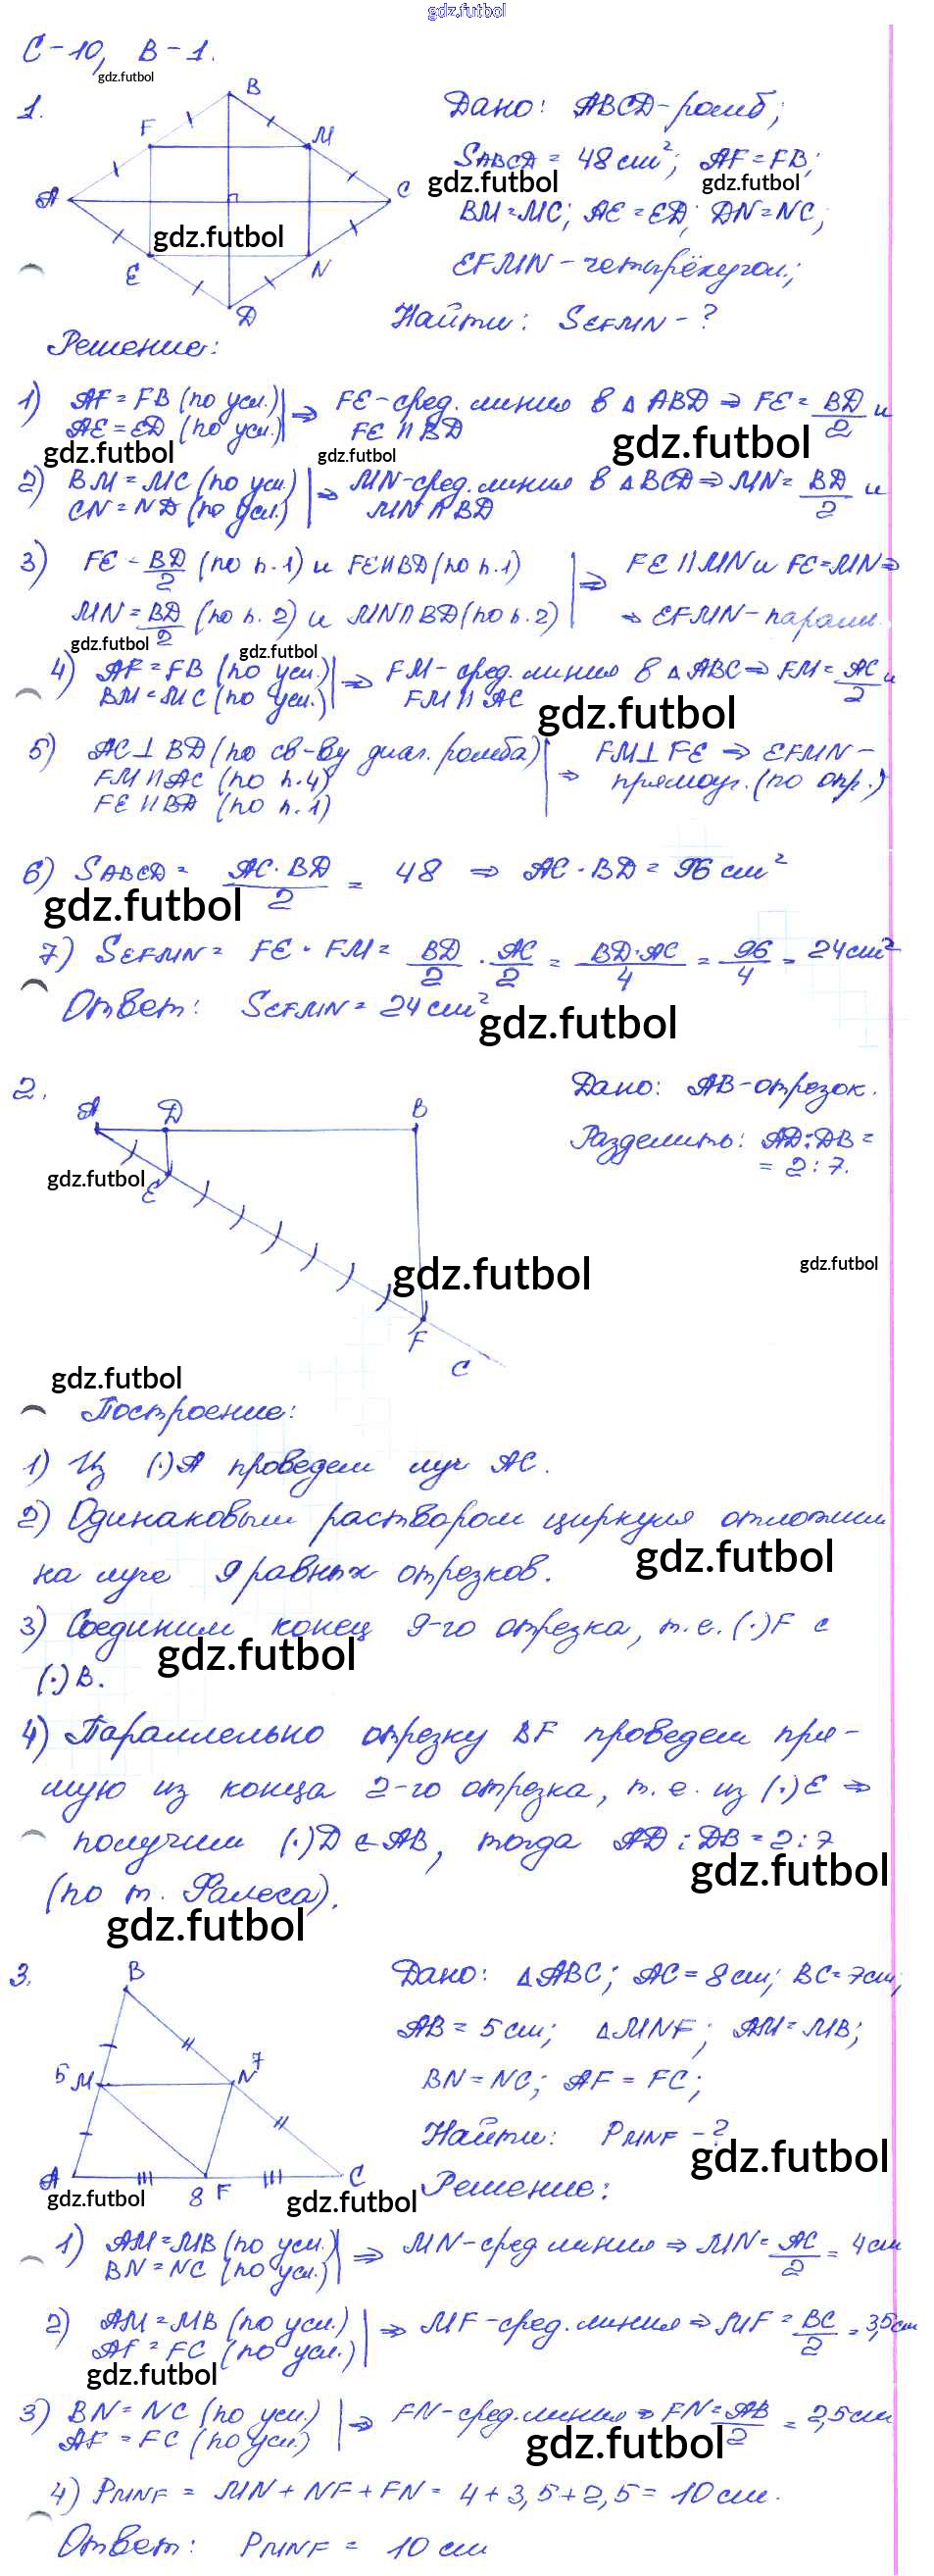 gdz.futbol
С-10, В-1.
gdz.futbol
1.
B
F
M
A
C
gdz.futbol
E
N
D
Дано: ABCD-ромб;
SABCD = 48 см²; AF = FB;
gdz.futbol gdz.futbol
BM = MC; AE = ED; DN = NC;
EFMN - четырёхугол.;
Найти: SEFMN - ?
Решение:
1) AF = FB (по усл.) | ⇒ FE - сред. линия в △ ABD ⇒ FE = BD/2 и
AE = ED (по усл.) | FE || BD
gdz.futbol gdz.futbol gdz.futbol
2) BM = MC (по усл.) | ⇒ MN - сред. линия в △ BCD ⇒ MN = BD/2 и
CN = ND (по усл.) | MN || BD
3) FE = BD/2 (по п. 1) и FE || BD (по п. 1) | ⇒ FE || MN и FE = MN ⇒
MN = BD/2 (по п. 2) и MN || BD (по п. 2) | ⇒ EFMN - паралл.
gdz.futbol gdz.futbol
4) AF = FB (по усл.) | ⇒ FM - сред. линия в △ ABC ⇒ FM = AC/2 и
BM = MC (по усл.) | FM || AC
gdz.futbol
5) AC ⊥ BD (по св-ву диаг. ромба) | FM ⊥ FE ⇒ EFMN -
FM || AC (по п. 4) | ⇒ прямоуг. (по опр.)
FE || BD (по п. 1)
6) SABCD = AC · BD/2 = 48 ⇒ AC · BD = 96 см²
gdz.futbol
7) SEFMN = FE · FM = BD/2 · AC/2 = BD·AC/4 = 96/4 = 24 см²
Ответ: SEFMN = 24 см²
gdz.futbol
2.
A D B
gdz.futbol
E
gdz.futbol
F
C
Дано: AB - отрезок.
Разделить: AD : DB =
= 2 : 7.
gdz.futbol
gdz.futbol
Построение:
1) Из (·) A проведем луч AC.
2) Одинаковым раствором циркуля отложим
gdz.futbol
на луче 9 равных отрезков.
3) Соединим конец 9-го отрезка, т.е. (·) F с
gdz.futbol
(·) B.
4) Параллельно отрезку BF проведем пря-
мую из конца 2-го отрезка, т.е. из (·) E ⇒
получим (·) D ∈ AB, тогда AD : DB = 2 : 7
gdz.futbol
(по т. Фалеса).
gdz.futbol
3.
B
5 M
N 7
A
8 F
C
gdz.futbol gdz.futbol
Дано: △ ABC; AC = 8 см; BC = 7 см;
AB = 5 см; △ MNF; AM = MB;
BN = NC; AF = FC;
Найти: PMNF - ?
gdz.futbol
Решение:
1) AM = MB (по усл.) | ⇒ MN - сред линия ⇒ MN = AC/2 = 4 см
BN = NC (по усл.) |
2) AM = MB (по усл.) | ⇒ MF - сред. линия ⇒ MF = BC/2 = 3,5 см
AF = FC (по усл.) |
gdz.futbol
3) BN = NC (по усл.) | ⇒ FN - сред. линия ⇒ FN = AB/2 = 2,5 см
AF = FC (по усл.) |
gdz.futbol
4) PMNF = MN + NF + FN = 4 + 3,5 + 2,5 = 10 см.
Ответ: PMNF = 10 см